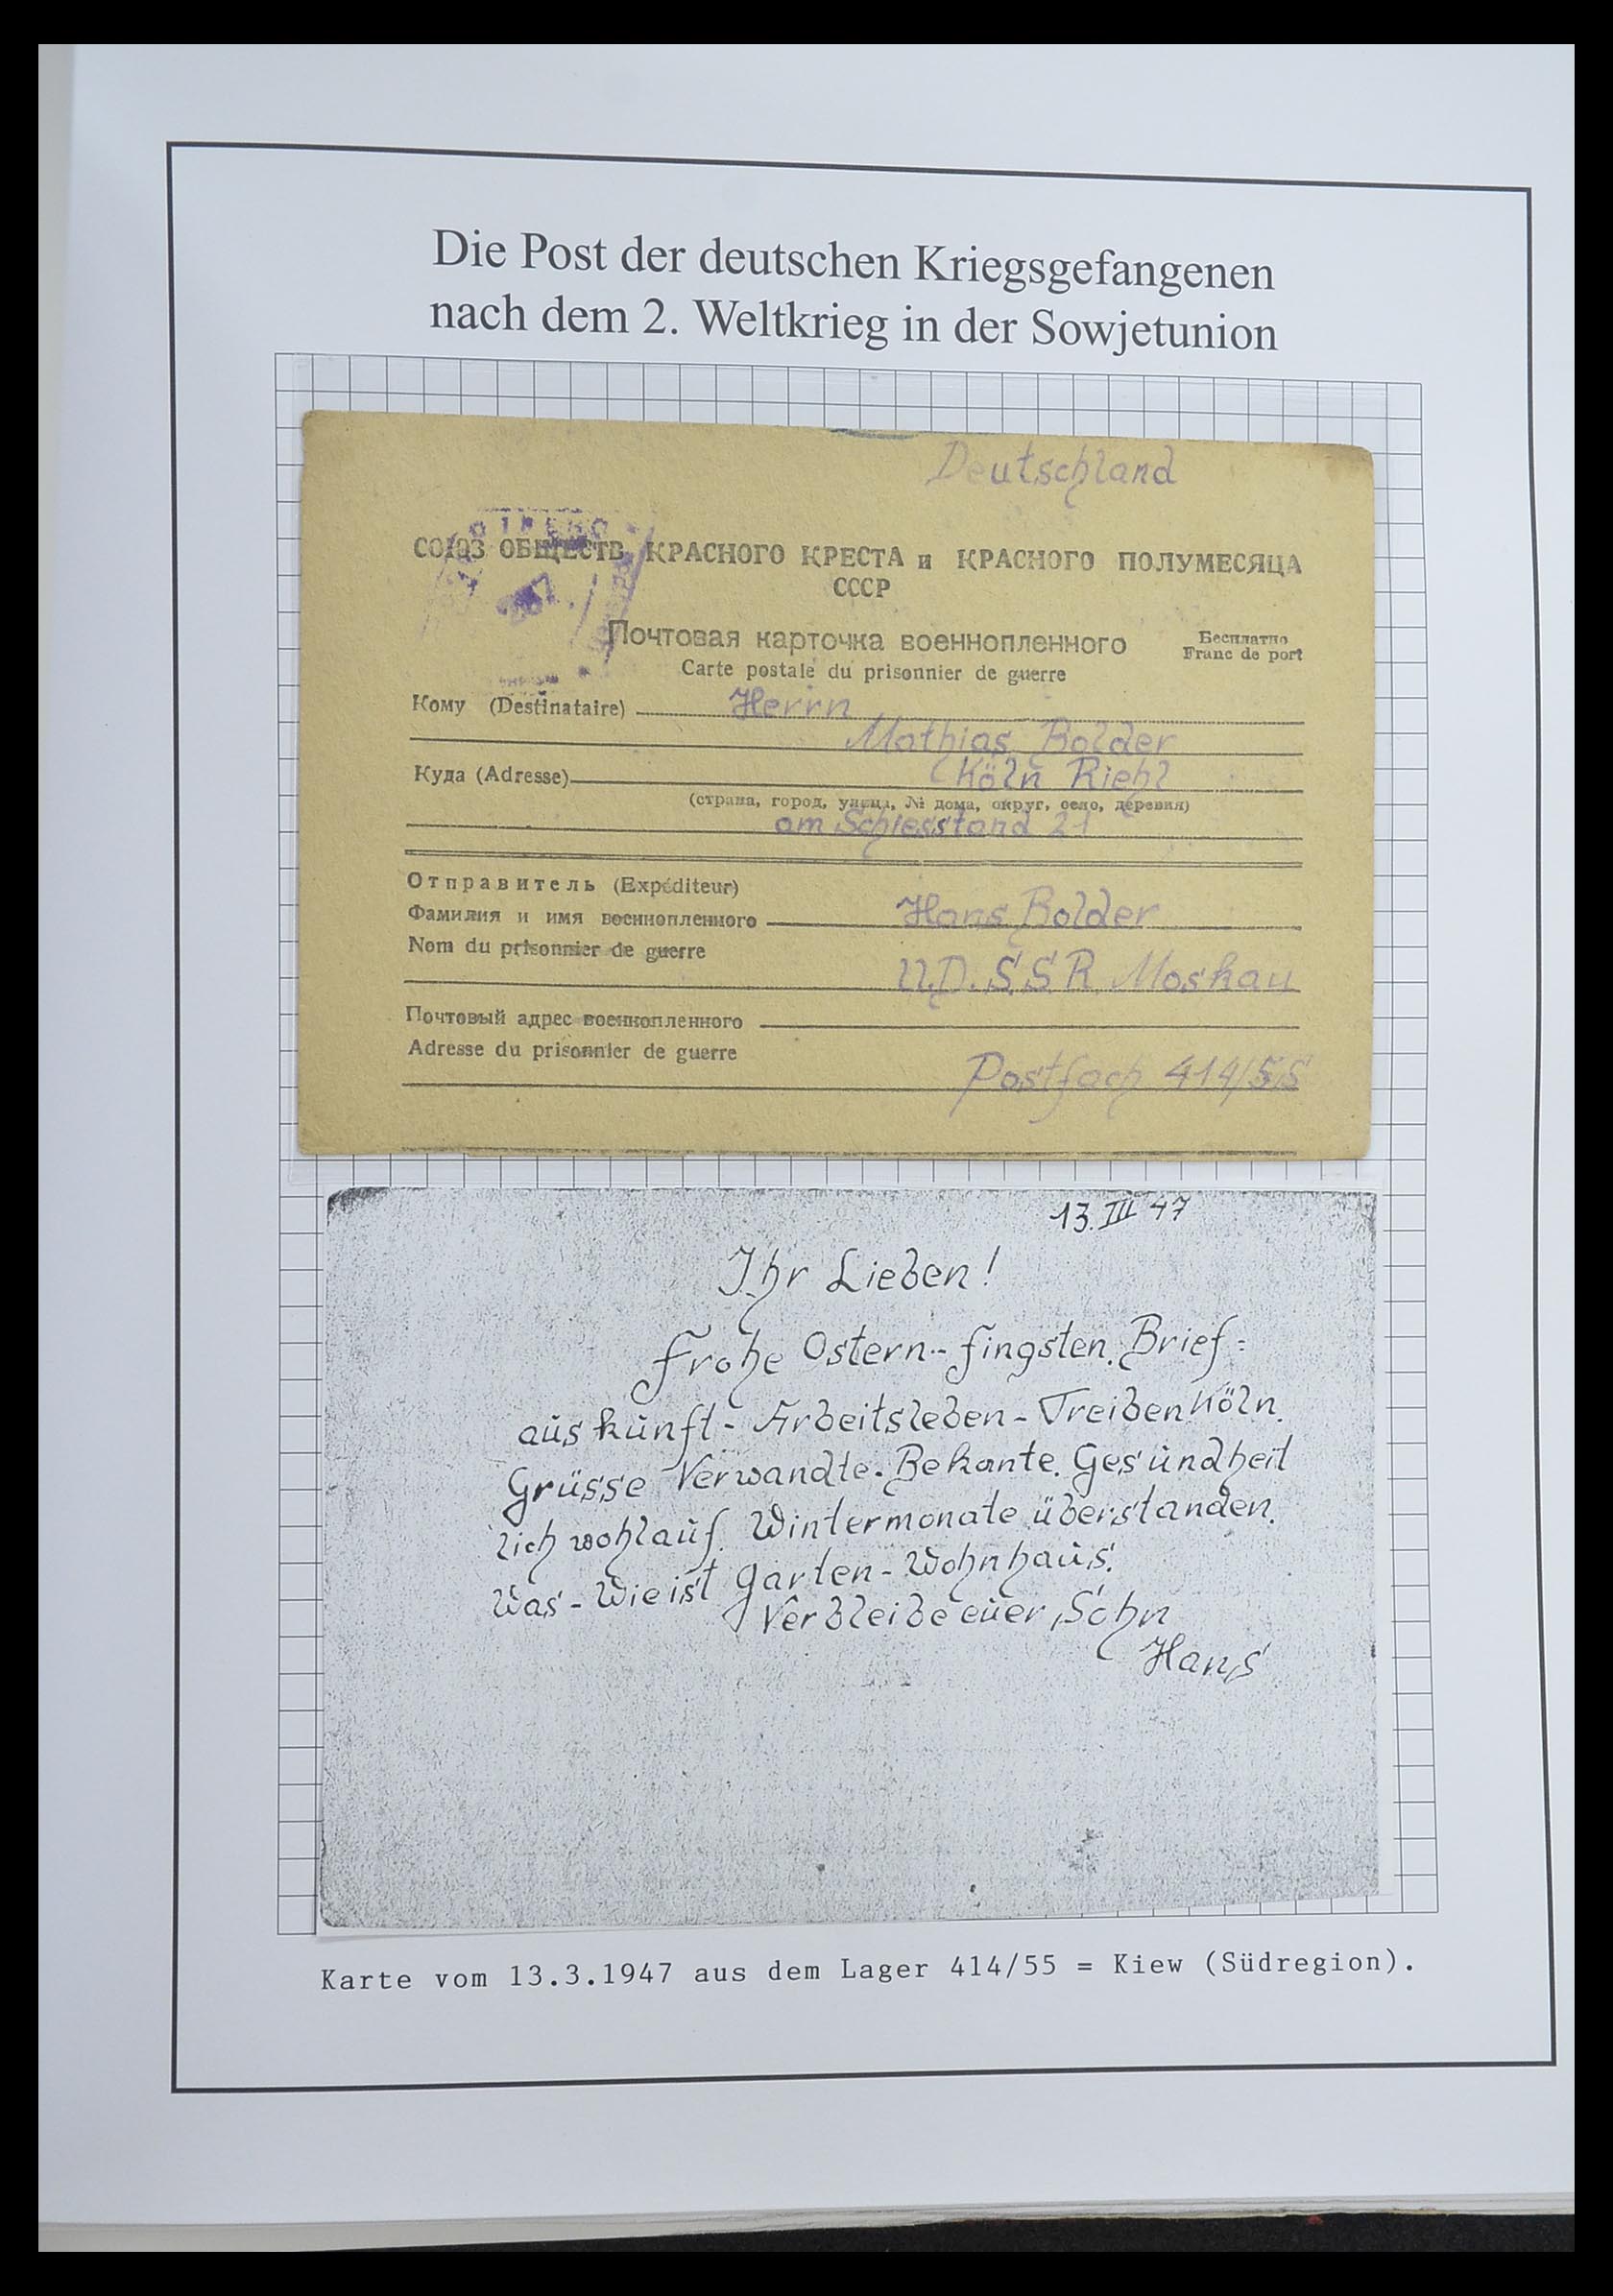 Die Post der deutschen Kriegsgefangenen
nach dem 2. Weltkrieg in der Sowjetunion
Deutschland
СОЮЗ ОБЩЕСТВ КРАСНОГО КРЕСТА и КРАСНОГО ПОЛУМЕСЯЦА
СССР
Почтовая карточка военнопленного
Бесплатно
Franc de port
Carte postale du prisonnier de guerre
Кому (Destinataire) Herrn
Mathias Bolder
Куда (Adresse) Köln Riehl
(страна, город, улица, № дома, округ, село, деревня)
am Schiesstand 21
Отправитель (Expéditeur)
Фамилия и имя военнопленного Hans Bolder
Nom du prisonnier de guerre
U.D.S.S.R. Moskau
Почтовый адрес военнопленного
Adresse du prisonnier de guerre
Postfach 414/55
13. III 47
Ihr Lieben!
Frohe Ostern-- fingsten. Brief=
auskunft - Arbeitsleben - Treiben Köln.
Grüsse Verwandte. Bekante. Gesundheit
lich wohlauf. Wintermonate überstanden.
Was - Wie ist Garten - Wohnhaus.
Verbleibe euer Sohn
Hans
Karte vom 13.3.1947 aus dem Lager 414/55 = Kiew (Südregion).